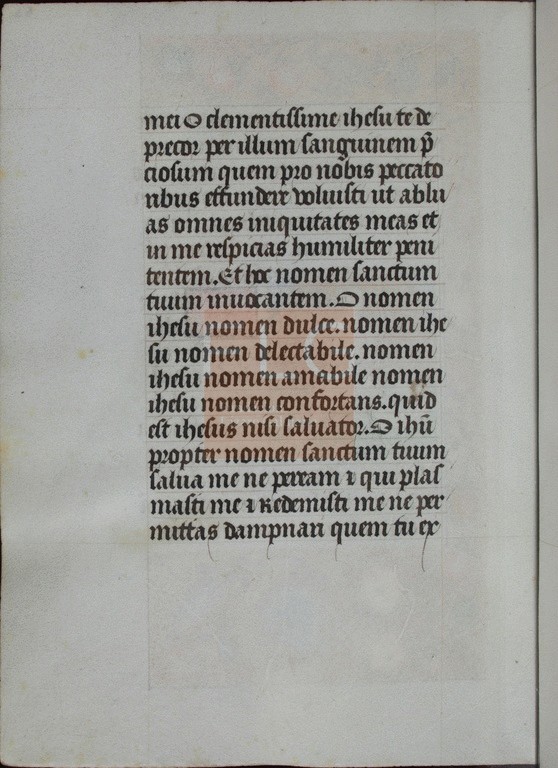 mei O clementissime ihesu te de
precor per illum sanguinem p̄
ciosum quem pro nobis peccato
ribus effundere voluisti ut ablu
as omnes iniquitates meas et
in me respicias humiliter peni
tentem. Et hoc nomen sanctum
tuum inuocantem. O nomen
ihesu nomen dulce. nomen ihe
su nomen delectabile. nomen
ihesu nomen amabile nomen
ihesu nomen confortans. quid
est ihesus nisi saluator. O ihū
propter nomen sanctum tuum
salua me ne peream ⁊ qui plas
masti me ⁊ Redemisti me ne per
mittas dampnari quem tu ex